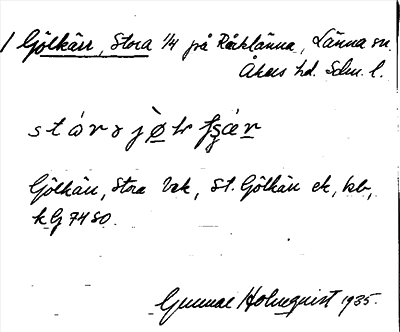 1 Gölkärr, Stora 1/4 på Räcklänna, Länna sn.
Åkers hd. Sdm. l.
Gölkärr, Stora Jbk, St. Gölkärr ek, kb,
k Gj 74 SO.
Gunnar Holmquist 1935.